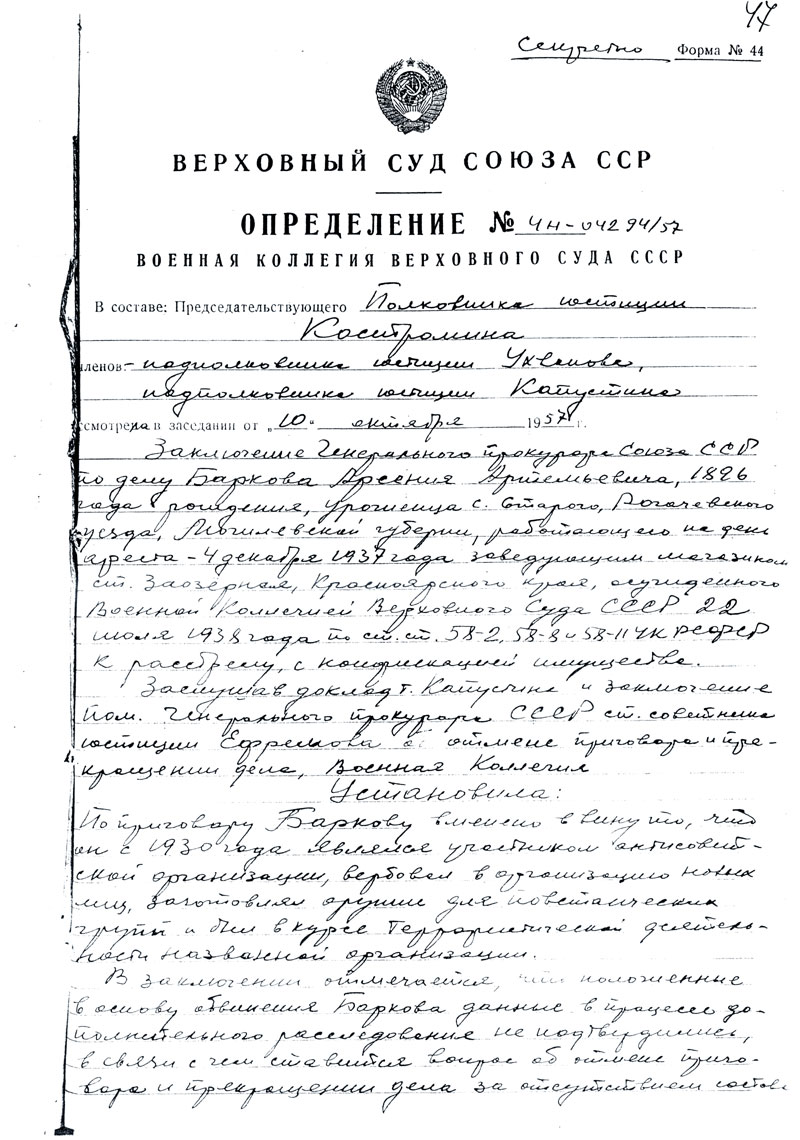 47
Секретно Форма № 44
ВЕРХОВНЫЙ СУД СОЮЗА ССР
ОПРЕДЕЛЕНИЕ № 4Н-04294/57
ВОЕННАЯ КОЛЛЕГИЯ ВЕРХОВНОГО СУДА СССР
В составе: Председательствующего Полковника юстиции
Костромина
членов: - подполковника юстиции
подполковника юстиции Капустина
смотрела в заседании от „10" октября 1957 г.
Заключение Генерального прокурора Союза ССР
по делу Баркова Арсения Артемьевича, 1896
года рождения, уроженца с. Старого, Рогачевского
уезда, Могилевской губернии, работающего на день
ареста - 4 декабря 1937 года заведующим магазином
ст. Заозерная, Красноярского края, осужденного
Военной Коллегией Верховного Суда СССР 22
июля 1938 года по ст. ст. 58-2, 58-8 и 58-11 УК РСФСР
к расстрелу, с конфискацией имущества.
Заслушав доклад т. Капустина и заключение
пом. Генерального прокурора СССР ст. советника
юстиции Ефремова об отмене приговора и пре-
кращении дела, Военная Коллегия
Установила:
По приговору Баркову вменено в вину то, что
он с 1930 года являлся участником антисовет-
ской организации, вербовал в организацию новых
лиц, заготовлял оружие для повстанческих
групп и был в курсе террористической деятель-
ности названной организации.
В заключении отмечается, что положенные
в основу обвинения Баркова данные в процессе до-
полнительного расследования не подтвердились,
в связи с чем ставится вопрос об отмене приго-
вора и прекращении дела за отсутствием состава